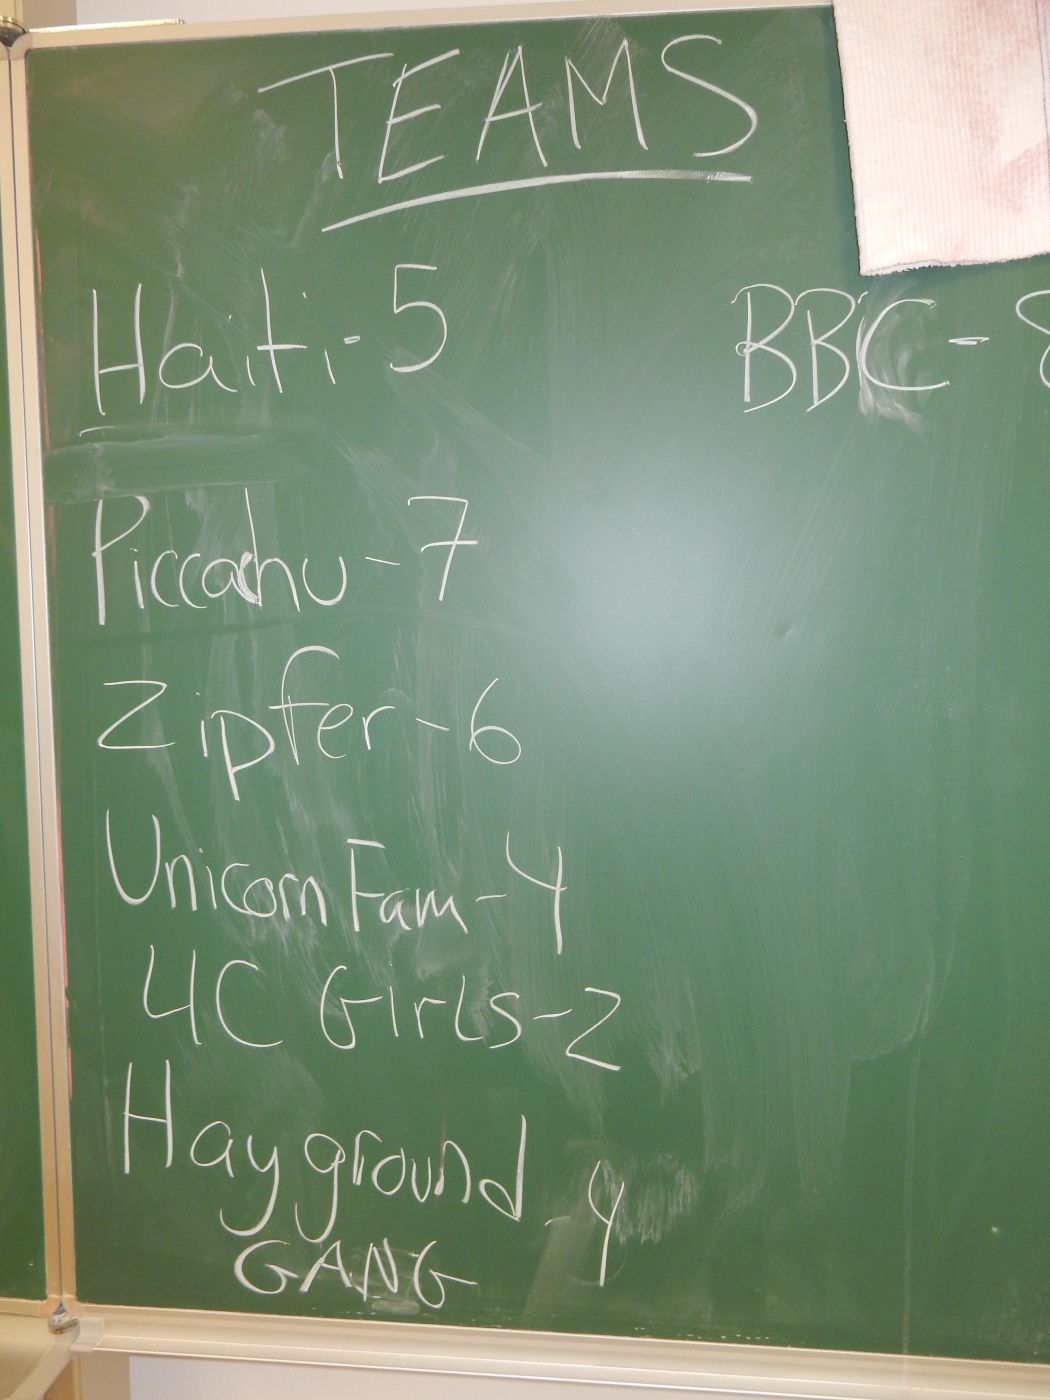 TEAMS
Haiti - 5
BBC - 8
Piccachu - 7
Zipfer - 6
Unicorn Fam - 4
4C Girls - 2
Hayground - 4
GANG